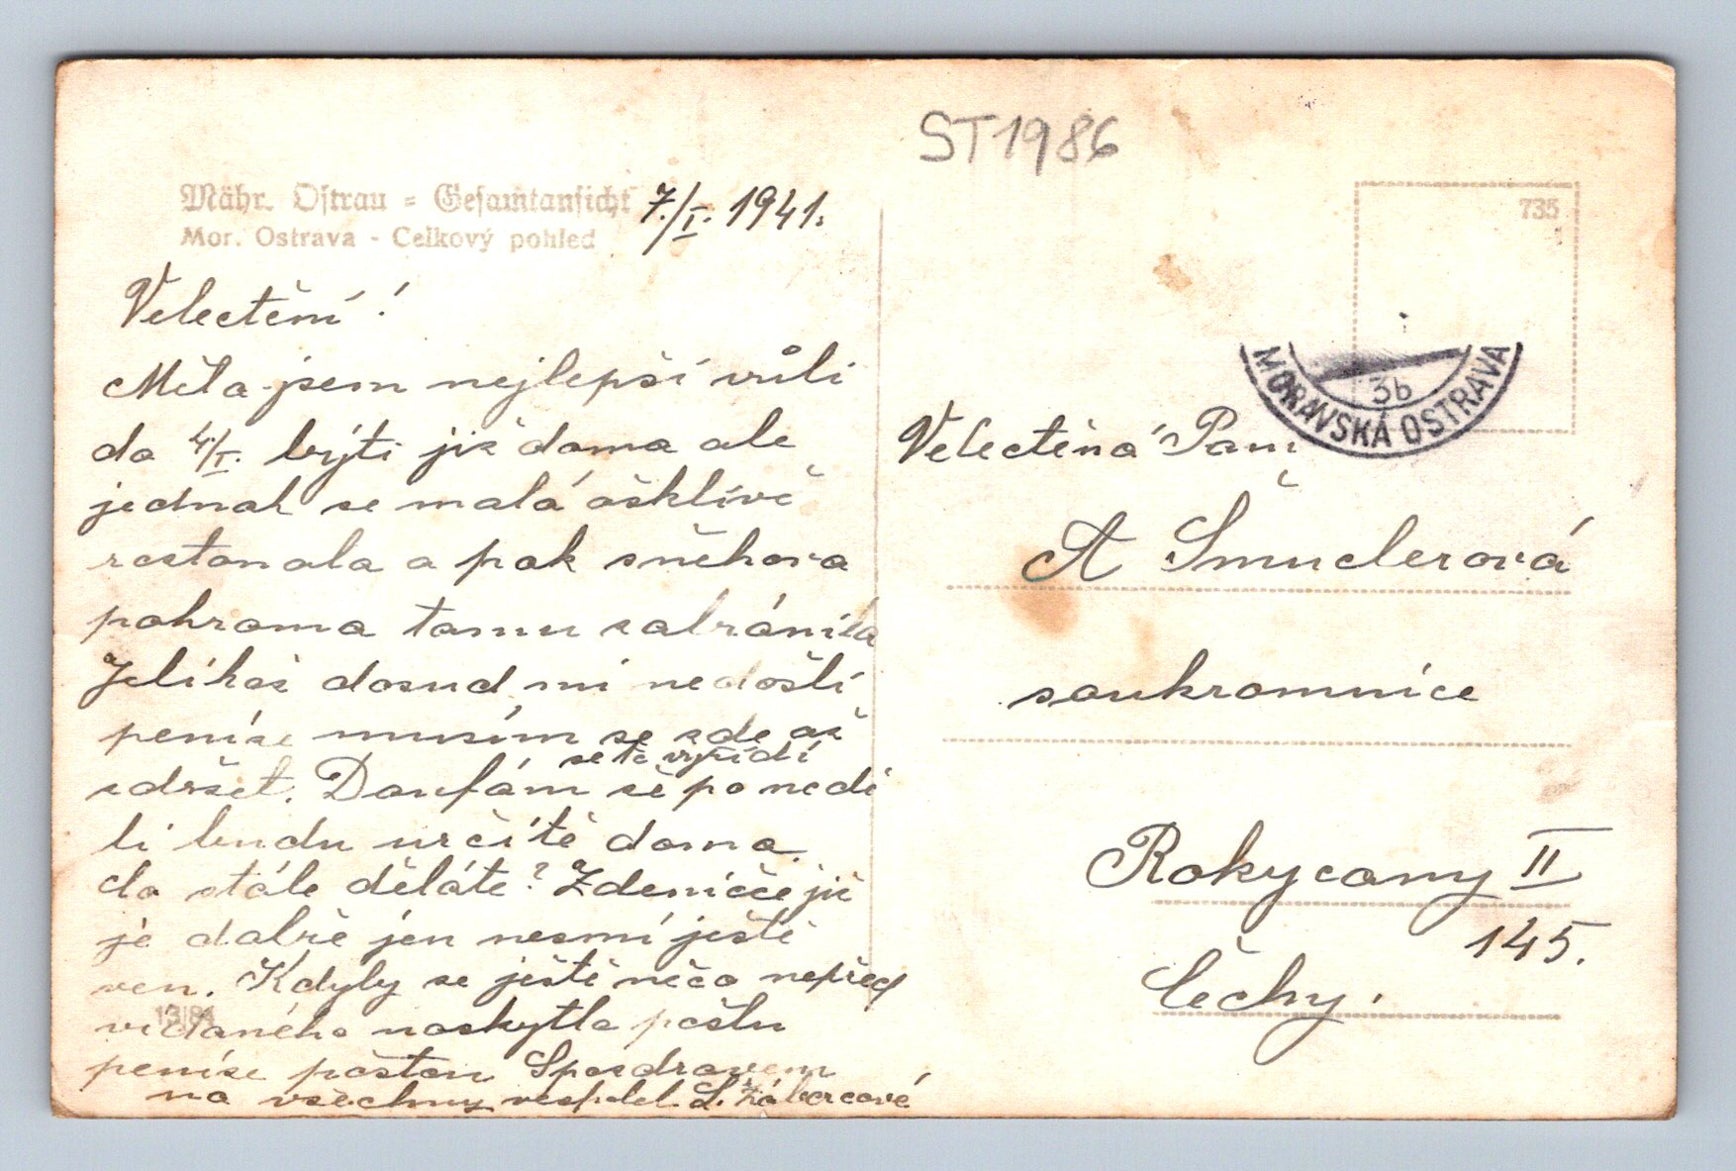 ST1986
Mähr. Ostrau = Gesamtansicht
Mor. Ostrava - Celkový pohled
7./I. 1941.
Velectění!
Měla jsem nejlepší vůli
do 4./I. býti již doma ale
jednak se malá ošklivě
rostonala a pak sněhova
pohroma tomu zabránila
Jelikož dosud mi nedošli
peníze musím se zde až
se to vyřídí
zdržet. Doufám že po nedě
li budu určitě doma.
Co stále děláte? Zdeničce již
je dobře jen nesmí ještě
ven. Kdyby se ještě něco nepřed
vídaného naskytlo pošlu
peníze poštou. S pozdravem
na všechny
735
MORAVSKÁ OSTRAVA
3b
Velectěná Paní
A Šmuclerová
soukromnice
Rokycany II
145.
Čechy.